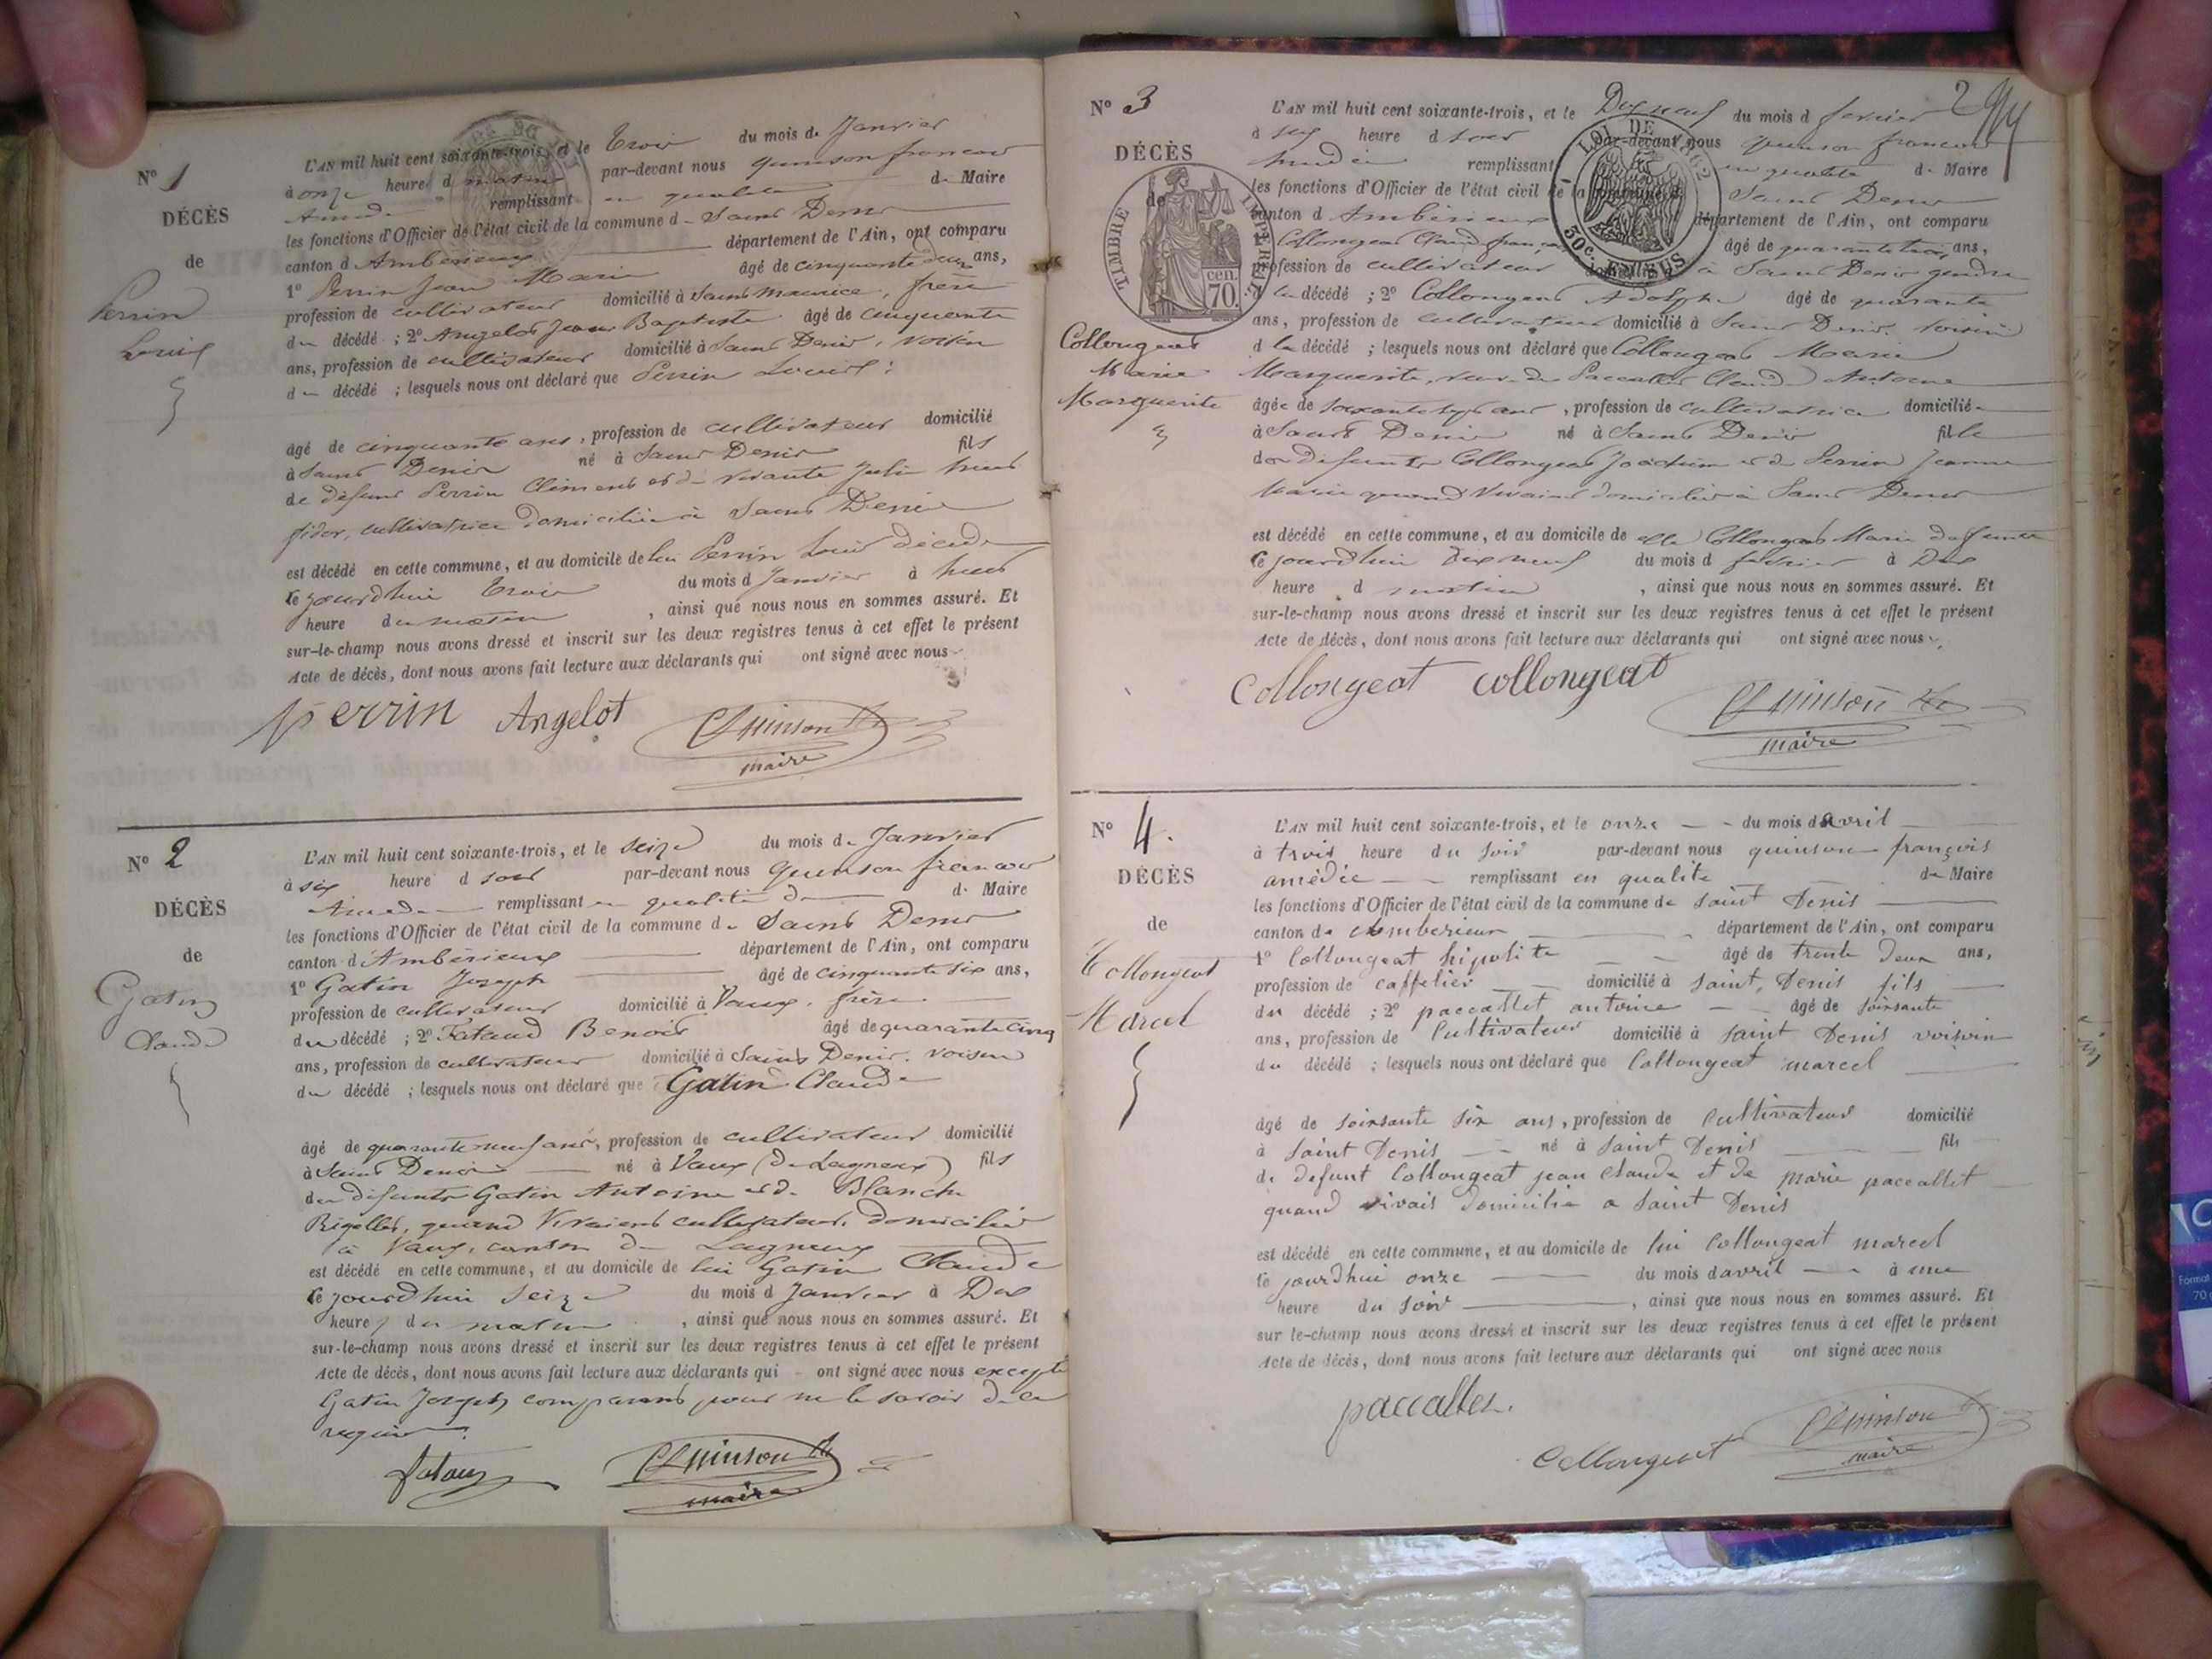 N° 1
DÉCÈS
de
Perrin
Louis
L'AN mil huit cent soixante-trois, et le Trois du mois de Janvier
à onze heures d matin par-devant nous quinson francois
Amédé remplissant en qualité de Maire
les fonctions d'Officier de l'état civil de la commune de Saint Denis
canton d'Ambérieux département de l'Ain, ont comparu
1° Perrin Jean Marie âgé de cinquante deux ans,
profession de cultivateur domicilié à Saint Maurice, frere
du décédé ; 2° Angelot Jean Baptiste âgé de cinquante
ans, profession de cultivateur domicilié à Saint Denis, voisin
du décédé ; lesquels nous ont déclaré que Perrin Louis
âgé de cinquante ans, profession de cultivateur domicilié
à Saint Denis né à Saint Denis fils
de défunt Perrin Clément et de vivante Julie
cultivatrice domiciliée à Saint Denis
est décédé en cette commune, et au domicile de lui Perrin Louis décédé
ce jourdhui trois du mois d Janvier à huit
heure du matin, ainsi que nous nous en sommes assuré. Et
sur-le-champ nous avons dressé et inscrit sur les deux registres tenus à cet effet le présent
Acte de décès, dont nous avons fait lecture aux déclarants qui ont signé avec nous
perrin Angelot Quinson
maire
N° 2
DÉCÈS
de
Gatin
Claude
L'AN mil huit cent soixante-trois, et le seize du mois de Janvier
à six heure d soir par-devant nous Quinson francois
Amédé remplissant en qualité de Maire
les fonctions d'Officier de l'état civil de la commune de Saint Denis
canton d'Ambérieux département de l'Ain, ont comparu
1° Gatin Joseph âgé de cinquante six ans,
profession de cultivateur domicilié à Vaux, frère
du décédé ; 2° Fataud Benoit âgé de quarante cinq
ans, profession de cultivateur domicilié à Saint Denis, voisin
du décédé ; lesquels nous ont déclaré que Gatin Claude
âgé de quarante neuf ans, profession de cultivateur domicilié
à Saint Denis né à Vaux (de Lagneux) fils
des défunts Gatin Antoine et de Blanche
Rigollet, quand vivaient cultivateurs domiciliés
à Vaux, canton de Lagneux
est décédé en cette commune, et au domicile de lui Gatin Claude
ce jourdhui seize du mois d Janvier à Dix
heure du matin, ainsi que nous nous en sommes assuré. Et
sur-le-champ nous avons dressé et inscrit sur les deux registres tenus à cet effet le présent
Acte de décès, dont nous avons fait lecture aux déclarants qui ont signé avec nous excepté
Gatin Joseph comparant pour ne le savoir de ce
requis
Quinson
maire
2
N° 3
DÉCÈS
de
TIMBRE IMPERIAL
70 cen.
LOI DE 1862
50c. EN SUS
Collongeat
Marie
Marguerite
L'AN mil huit cent soixante-trois, et le Dix neuf du mois d fevrier
à six heure d soir par-devant nous quinson francois
Amédé remplissant en qualité de Maire
les fonctions d'Officier de l'état civil de la commune d Saint Denis
canton d Ambérieux département de l'Ain, ont comparu
1° Collongeat Claude françois âgé de quarante trois ans,
profession de cultivateur domicilié à Saint Denis gendre
d la décédé ; 2° Collongeat Adolphe âgé de quarante
ans, profession de cultivateur domicilié à Saint Denis, voisin
d la décédé ; lesquels nous ont déclaré que Collongeat Marie
Marguerite, veuve de Paccallet Claude Antoine
âgée de soixante sept ans, profession de cultivatrice domicilié
à Saint Denis né à Saint Denis fille
des defunts Collongeat Joachim et de Perrin Jeanne
Marie quand vivaient domiciliés à Saint Denis
est décédé en cette commune, et au domicile de elle Collongeat Marie defunte
ce jourdhui dix neuf du mois d fevrier à Dix
heure d matin, ainsi que nous nous en sommes assuré. Et
sur-le-champ nous avons dressé et inscrit sur les deux registres tenus à cet effet le présent
Acte de décès, dont nous avons fait lecture aux déclarants qui ont signé avec nous
Collongeat collongeat Quinson
maire
N° 4.
DÉCÈS
de
Collongeat
Marcel
L'AN mil huit cent soixante-trois, et le onze du mois d avril
à trois heure du soir par-devant nous quinson françois
amédée remplissant en qualité de Maire
les fonctions d'Officier de l'état civil de la commune de saint Denis
canton de Ambérieux département de l'Ain, ont comparu
1° Collongeat hipolite âgé de trente deux ans,
profession de caffetier domicilié à saint Denis fils
du décédé ; 2° paccallet antoine âgé de soixsante
ans, profession de Cultivateur domicilié à saint Denis voisin
du décédé ; lesquels nous ont déclaré que Collongeat marcel
âgé de soixsante six ans, profession de Cultivateur domicilié
à saint Denis né à saint Denis fils
de defunt Collongeat jean claude et de marie paccallet
quand vivais domicilié a saint Denis
est décédé en cette commune, et au domicile de lui Collongeat marcel
ce jourdhui onze du mois davril à une
heure du soir, ainsi que nous nous en sommes assuré. Et
sur le-champ nous avons dressé et inscrit sur les deux registres tenus à cet effet le présent
Acte de décès, dont nous avons fait lecture aux déclarants qui ont signé avec nous
paccallet.
Collongeat Quinson
maire